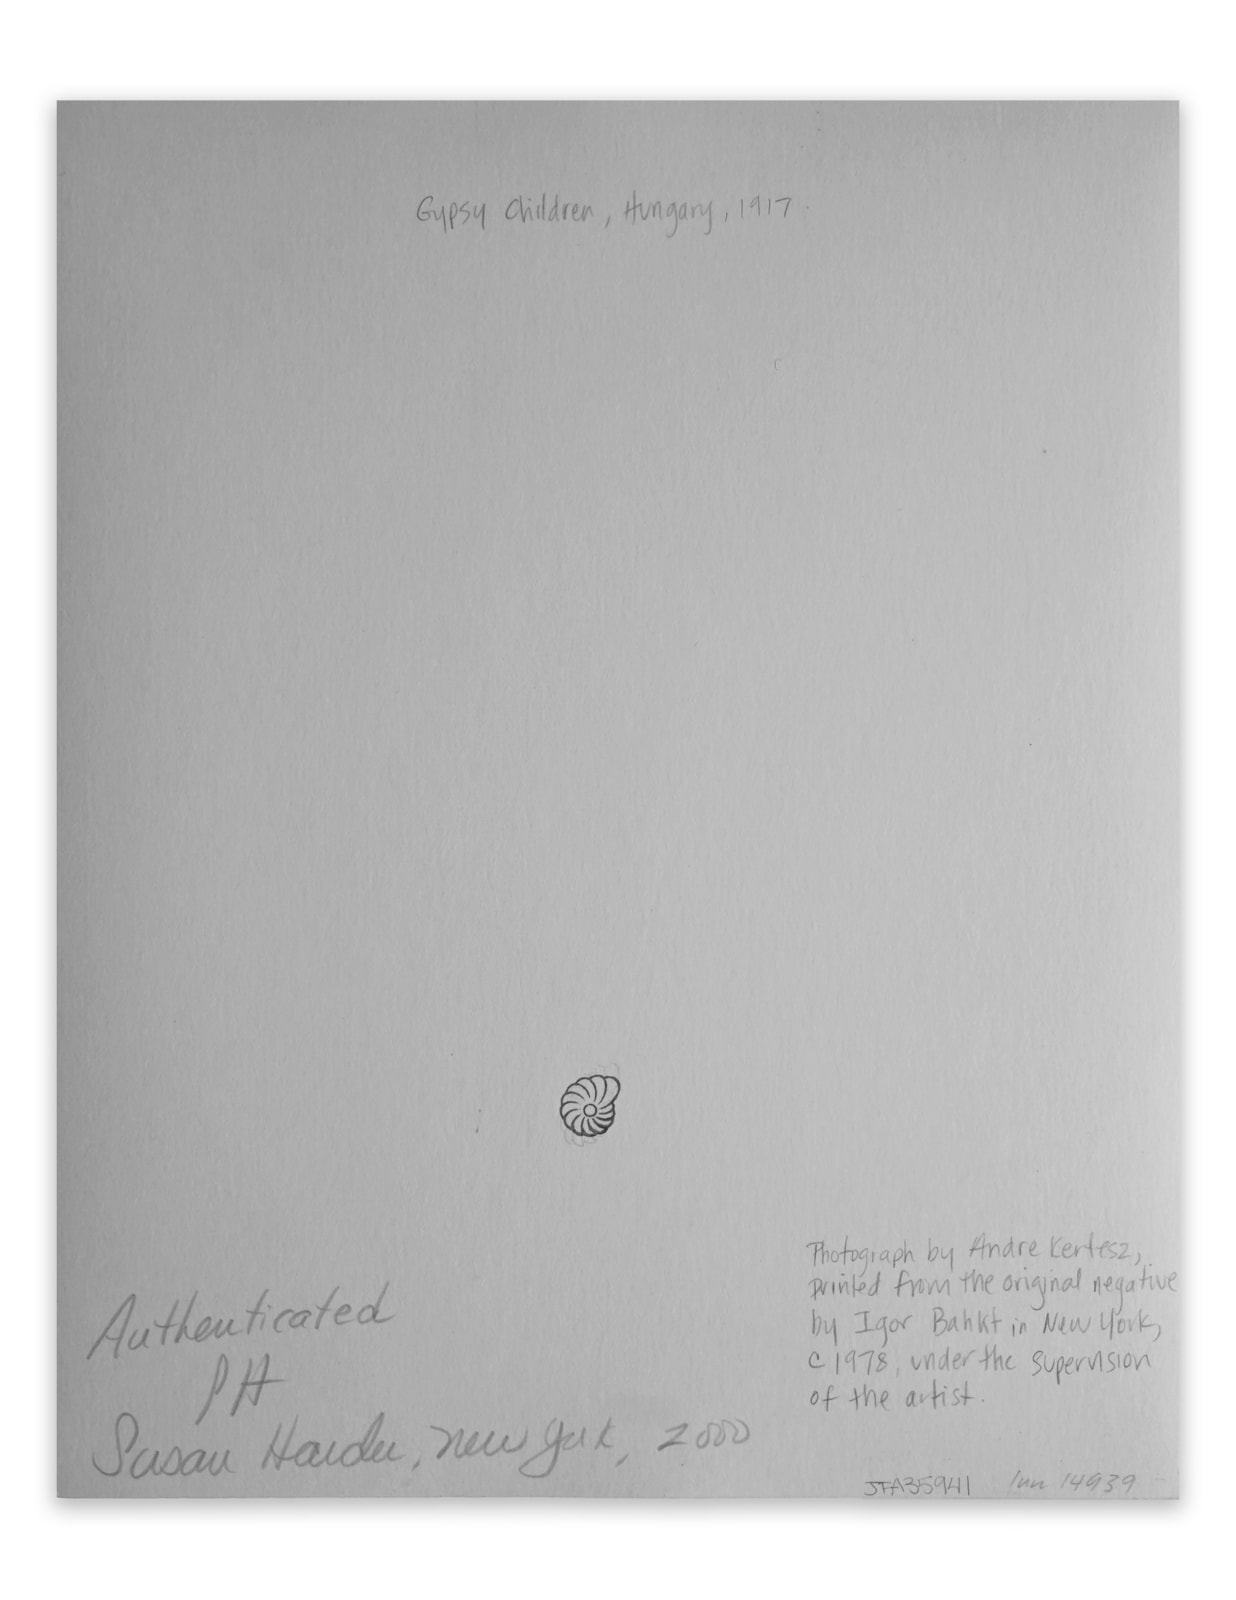 Gypsy Children, Hungary, 1917.
Photograph by Andre Kertesz,
printed from the original negative
by Igor Bahkt in New York,
c 1978, under the supervision
of the artist.
Authenticated
PH
Susan Harder, New York, 2000
JTA35941 Inv 14939